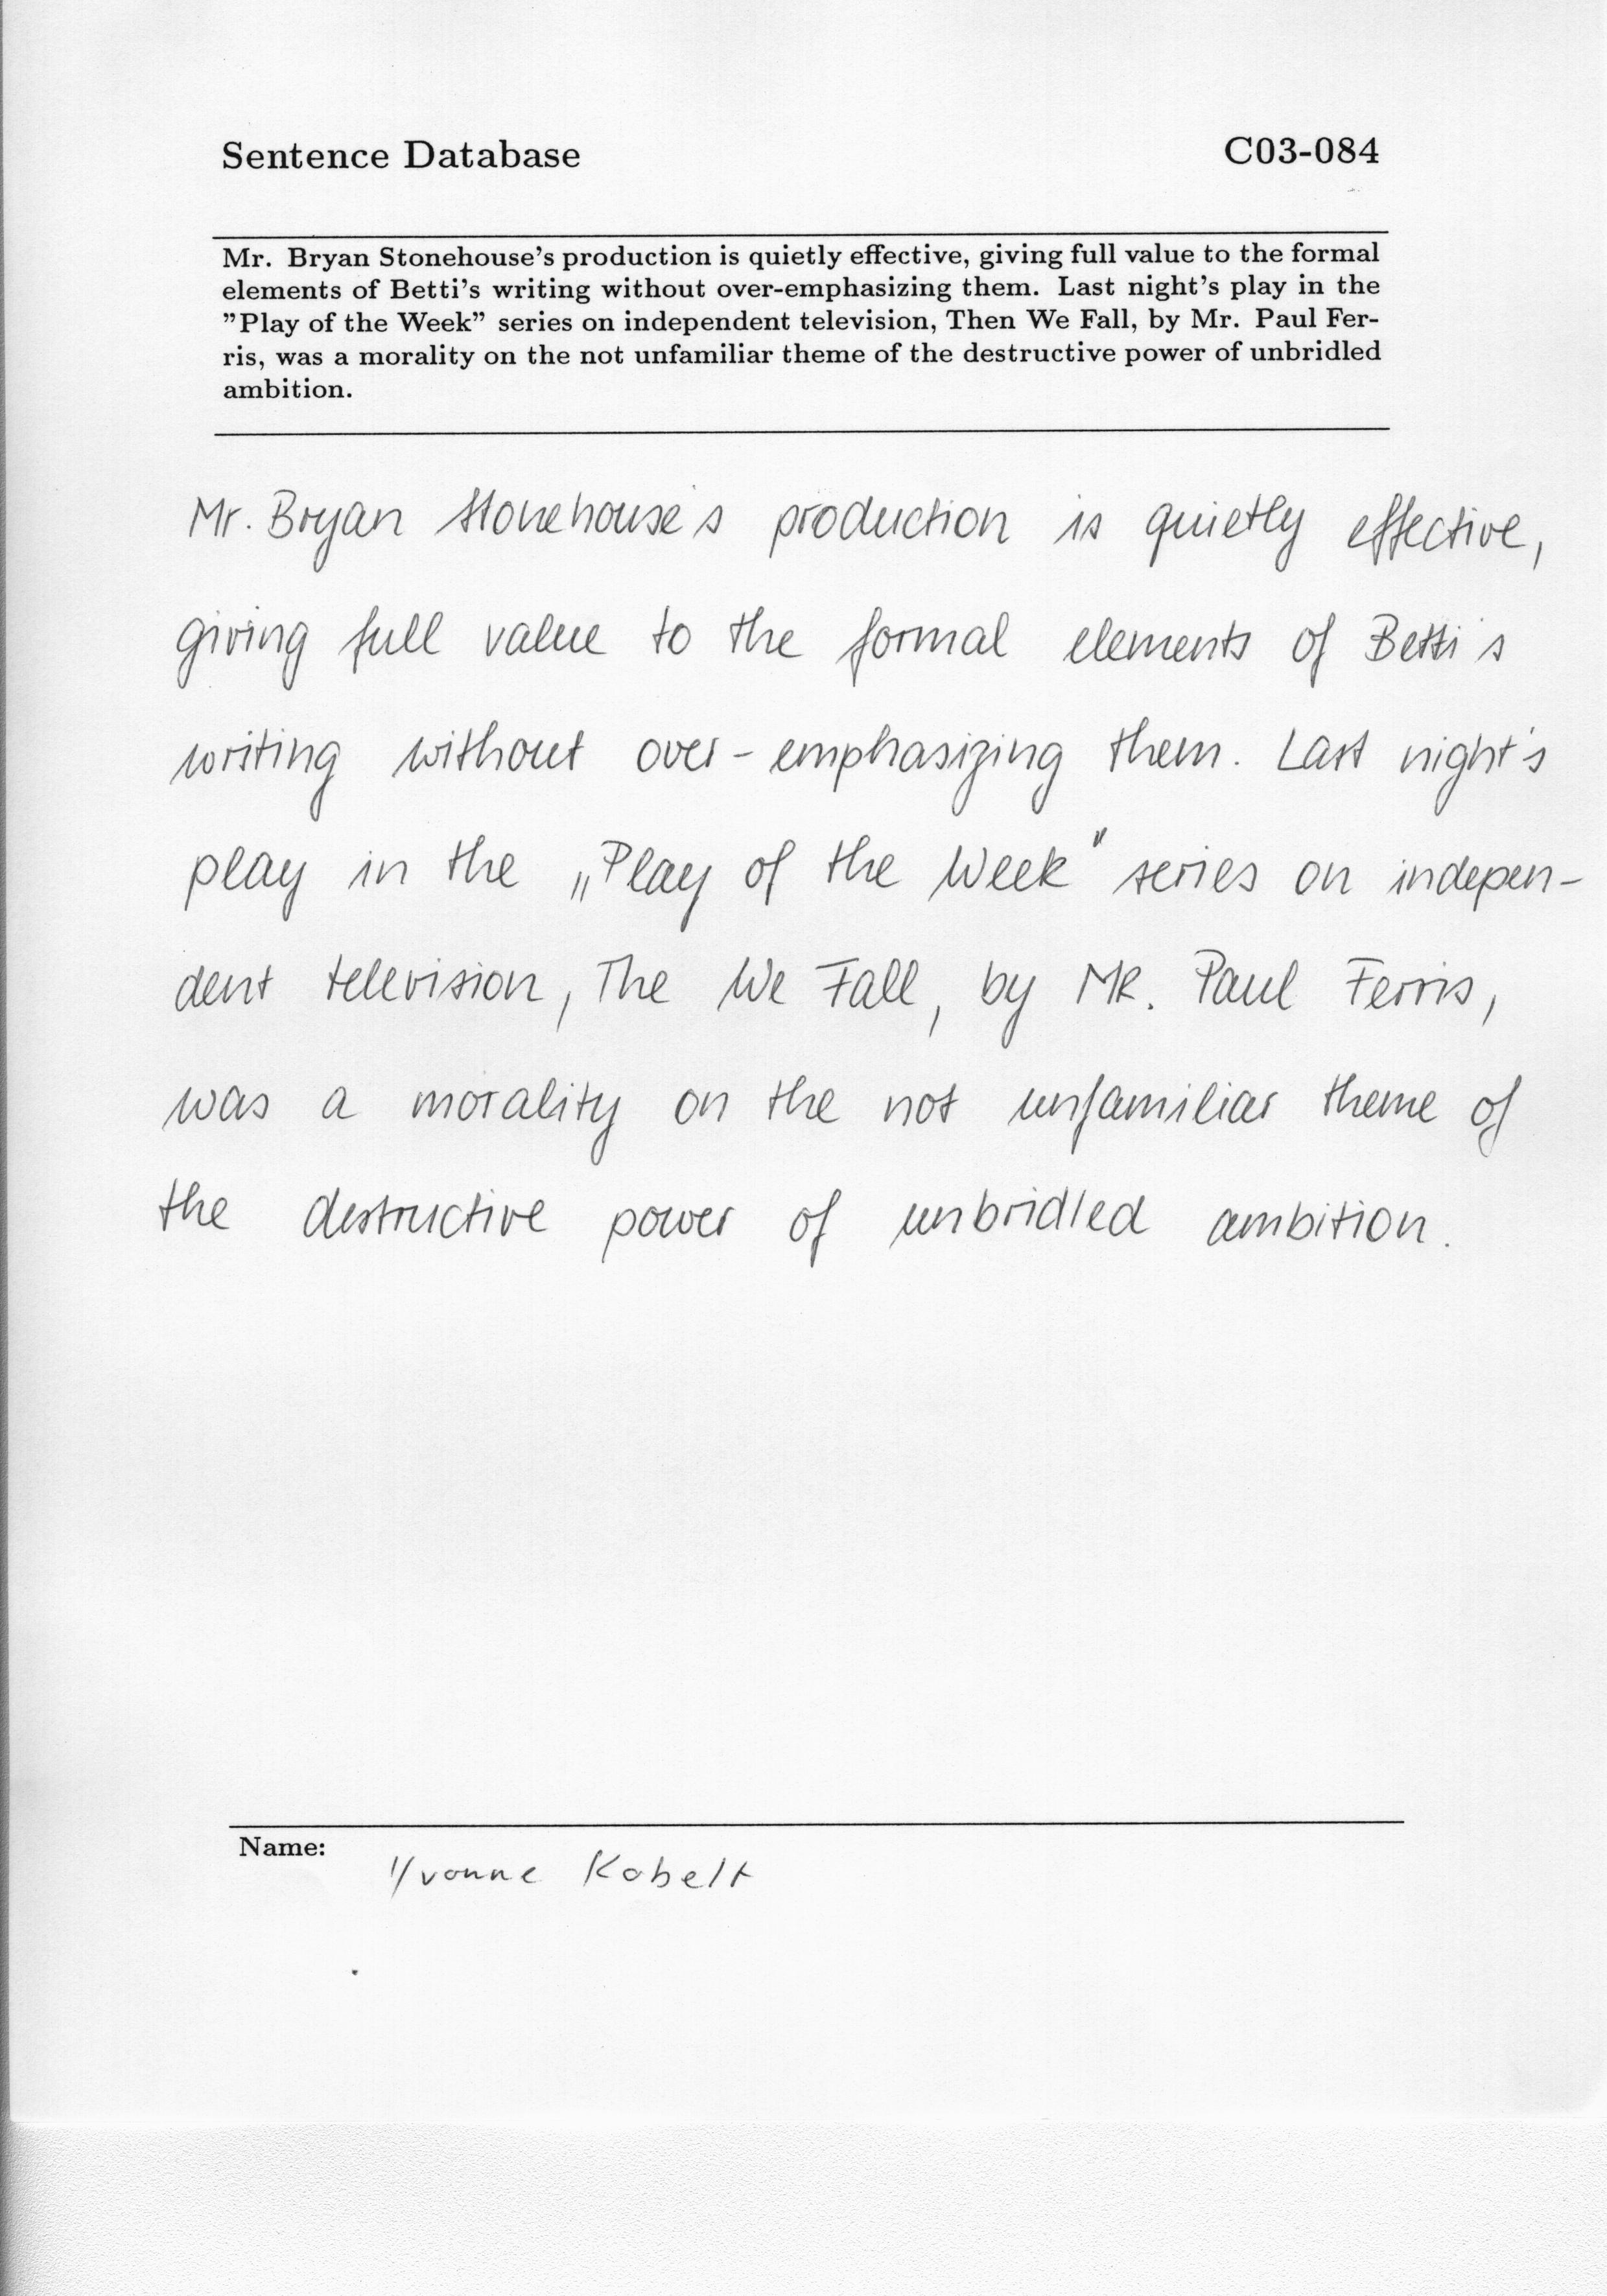 Sentence Database C03-084
Mr. Bryan Stonehouse's production is quietly effective, giving full value to the formal
elements of Betti's writing without over-emphasizing them. Last night's play in the
"Play of the Week" series on independent television, Then We Fall, by Mr. Paul Fer-
ris, was a morality on the not unfamiliar theme of the destructive power of unbridled
ambition.
Mr. Bryan Stonehouse's production is quietly effective,
giving full value to the formal elements of Betti's
writing without over-emphasizing them. Last night's
play in the „Play of the Week" series on indepen-
dent television, The We Fall, by MR. Paul Ferris,
was a morality on the not unfamiliar theme of
the destructive power of unbridled ambition.
Name:
Yvonne Kobelt